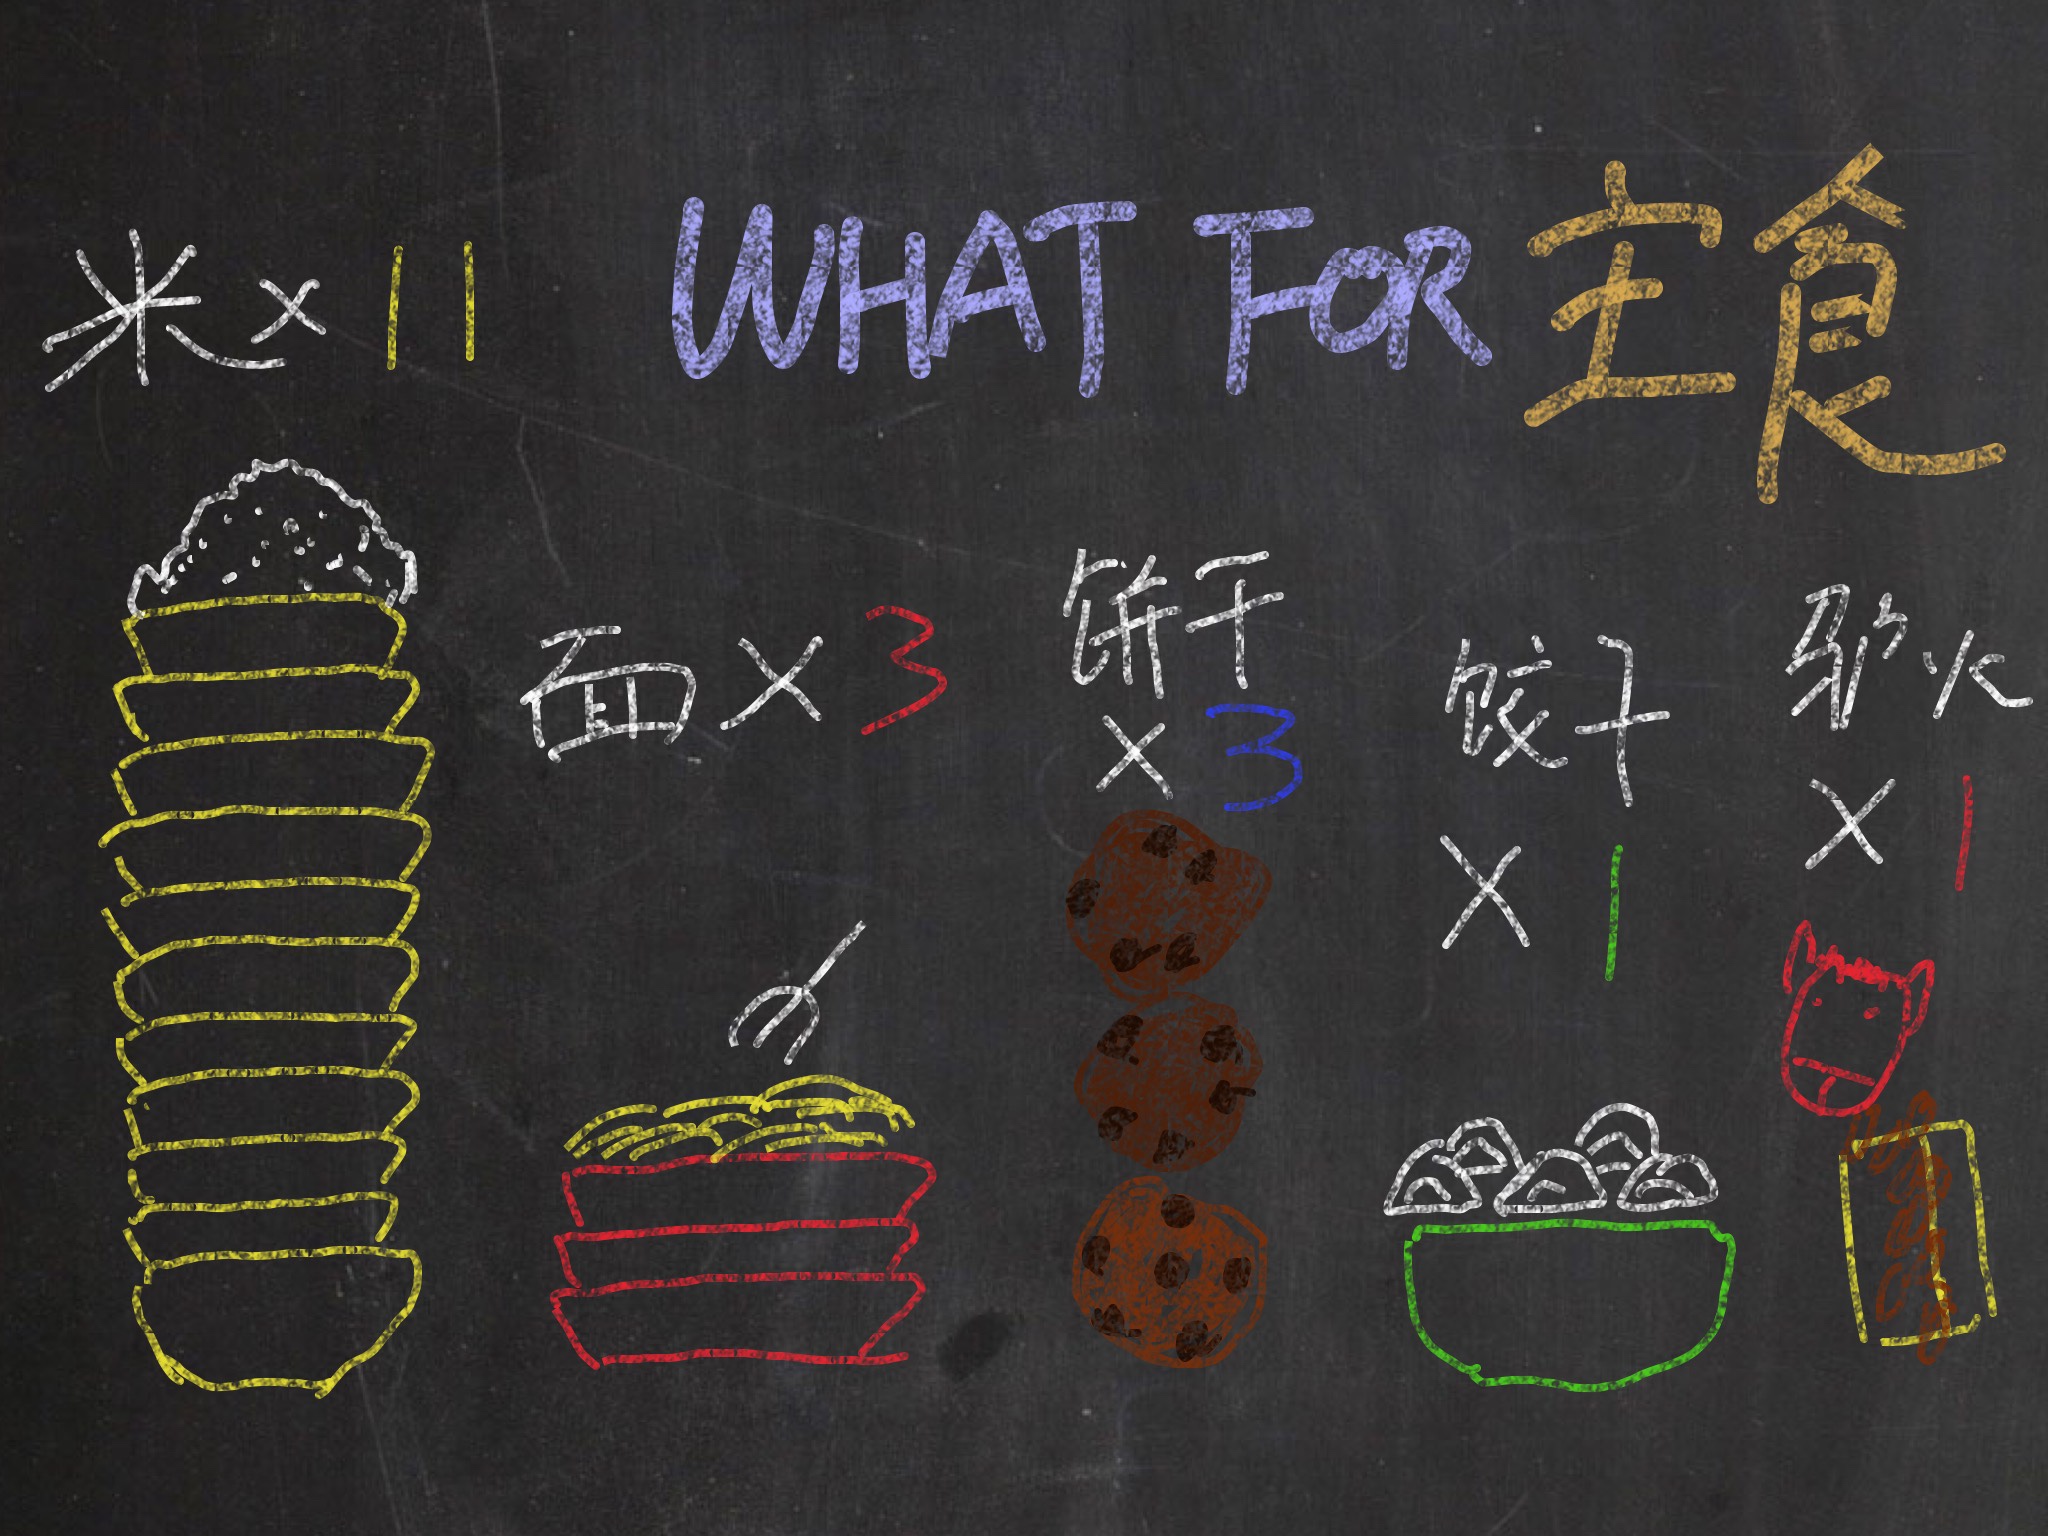 WHAT FOR 主食
米 x 11
面 x 3
饼干
x 3
饺子
x 1
驴火
x 1